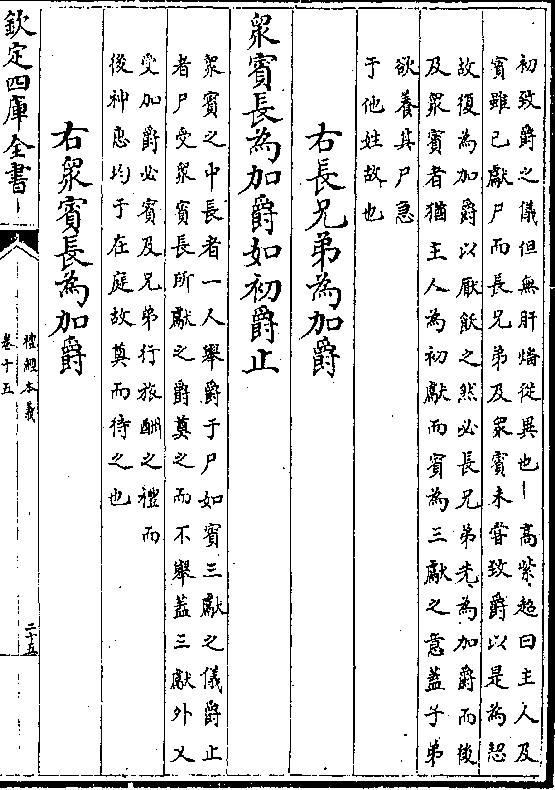 初致爵之儀但無肝燔從異也 高紫超曰主人及
賓雖已獻尸而長兄弟及衆賓未嘗致爵以是為恝
故復為加爵以厭飫之然必長兄弟先為加爵而後
及衆賓者猶主人為初獻而賓為三獻之意蓋子弟
欲養其尸急
于他姓故也
右長兄弟為加爵
衆賓長為加爵如初爵止
衆賓之中長者一人舉爵于尸如賓三獻之儀爵止
者尸受衆賓長所獻之爵奠之而不舉蓋三獻外又
受加爵必賓及兄弟行旅酬之禮而
後神惠均于在庭故奠而待之也
右衆賓長為加爵
欽定四庫全書
禮經本義
卷十五
二十五